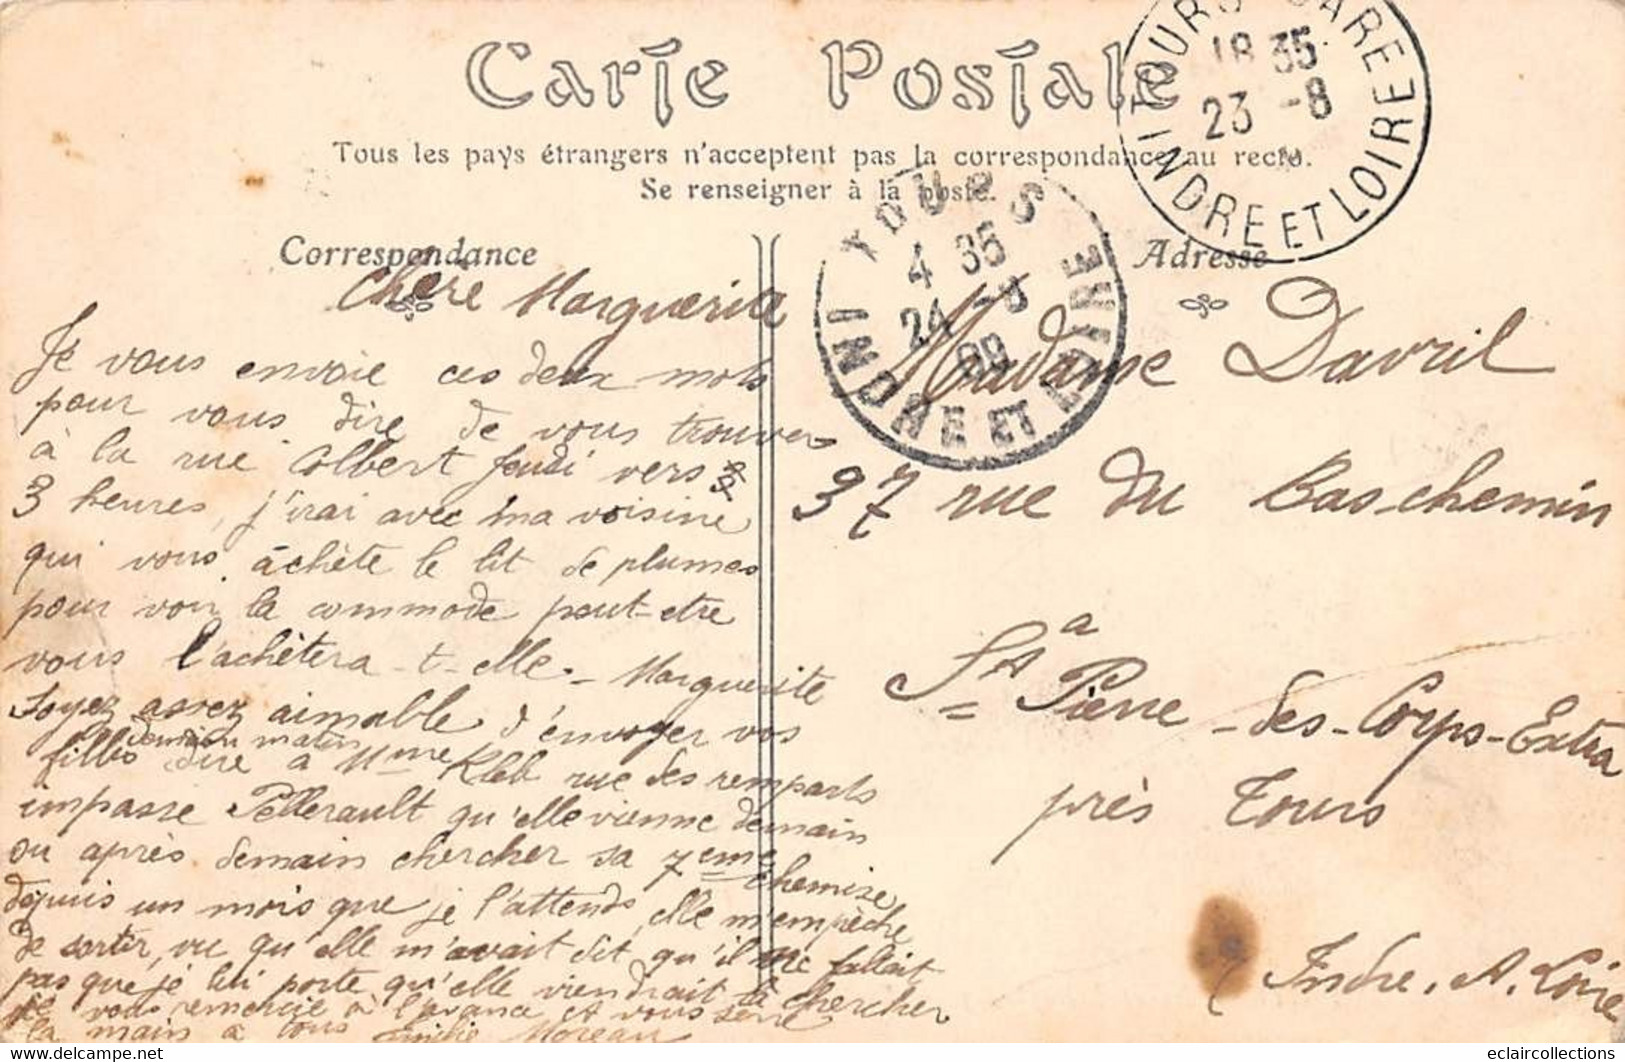 Carte Postale
Tous les pays étrangers n'acceptent pas la correspondance au recto.
Se renseigner à la poste.
TOURS GARE
18 35
23 -8
INDRE ET LOIRE
TOURS
4 35
24 -8
09
INDRE ET LOIRE
Correspondance
Adresse
Chère Marguerite
Je vous envoie ces deux mots
pour vous dire de vous trouver
à la rue Colbert Jeudi vers
3 heures, j'irai avec ma voisine
qui vous achète le lit de plumes
pour voir la commode peut-etre
vous l'achètera-t-elle - Marguerite
Soyez assez aimable d'envoyer vos
filles demain matin dire à Mme Kleb rue des remparts
impasse Pellerault qu'elle vienne demain
ou après demain chercher sa 7eme chemise
depuis un mois que je l'attends, elle m'empèche
de sortir, vu qu'elle m'avait dit qu'il ne fallait
pas que je lui porte qu'elle viendrait la chercher
Je vous remercie à l'avance et vous serre
la main à tous Emilie Moreau
Madame Davril
37 rue du Bas-chemin
a
St Pierre-des-Corps-Extra
près Tours
Indre. A. Loire
eclaircollections @ delcampe.net